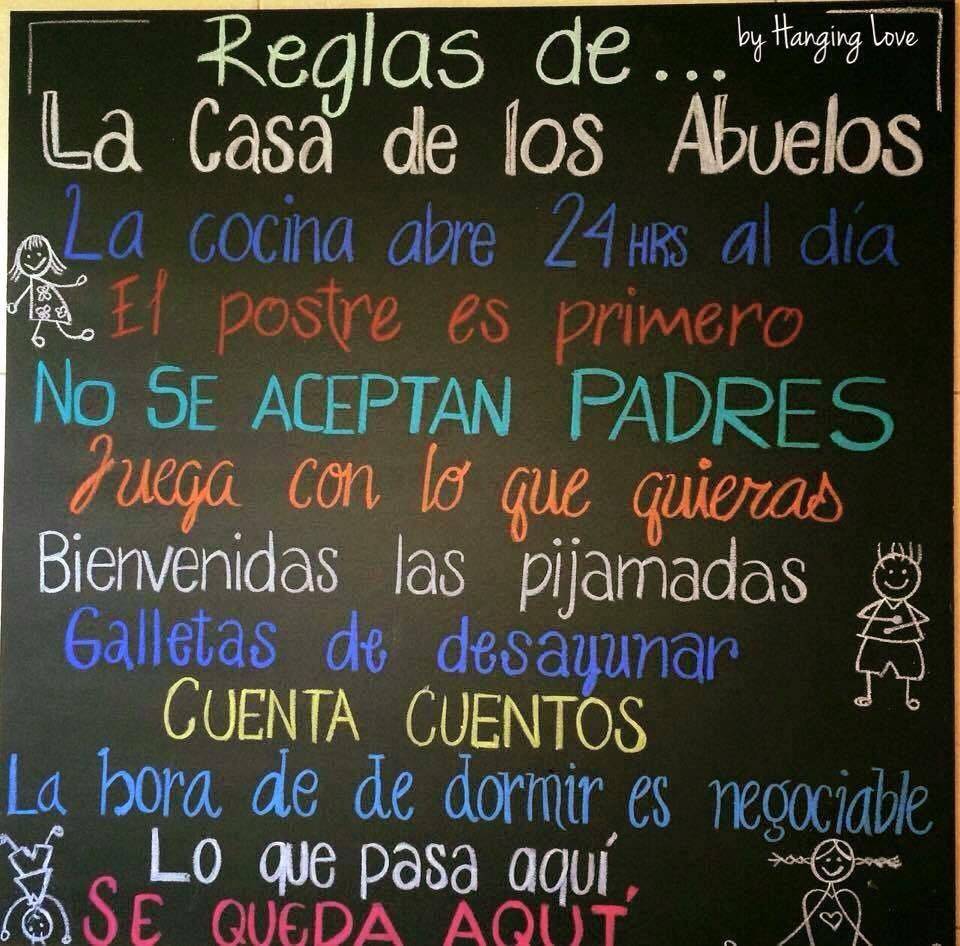 Reglas de...
by Hanging Love
La Casa de los Abuelos
La cocina abre 24 HRS al día
El postre es primero
NO SE ACEPTAN PADRES
Juega con lo que quieras
Bienvenidas las pijamadas
Galletas de desayunar
CUENTA CUENTOS
La hora de de dormir es negociable
Lo que pasa aquí
SE QUEDA AQUÍ